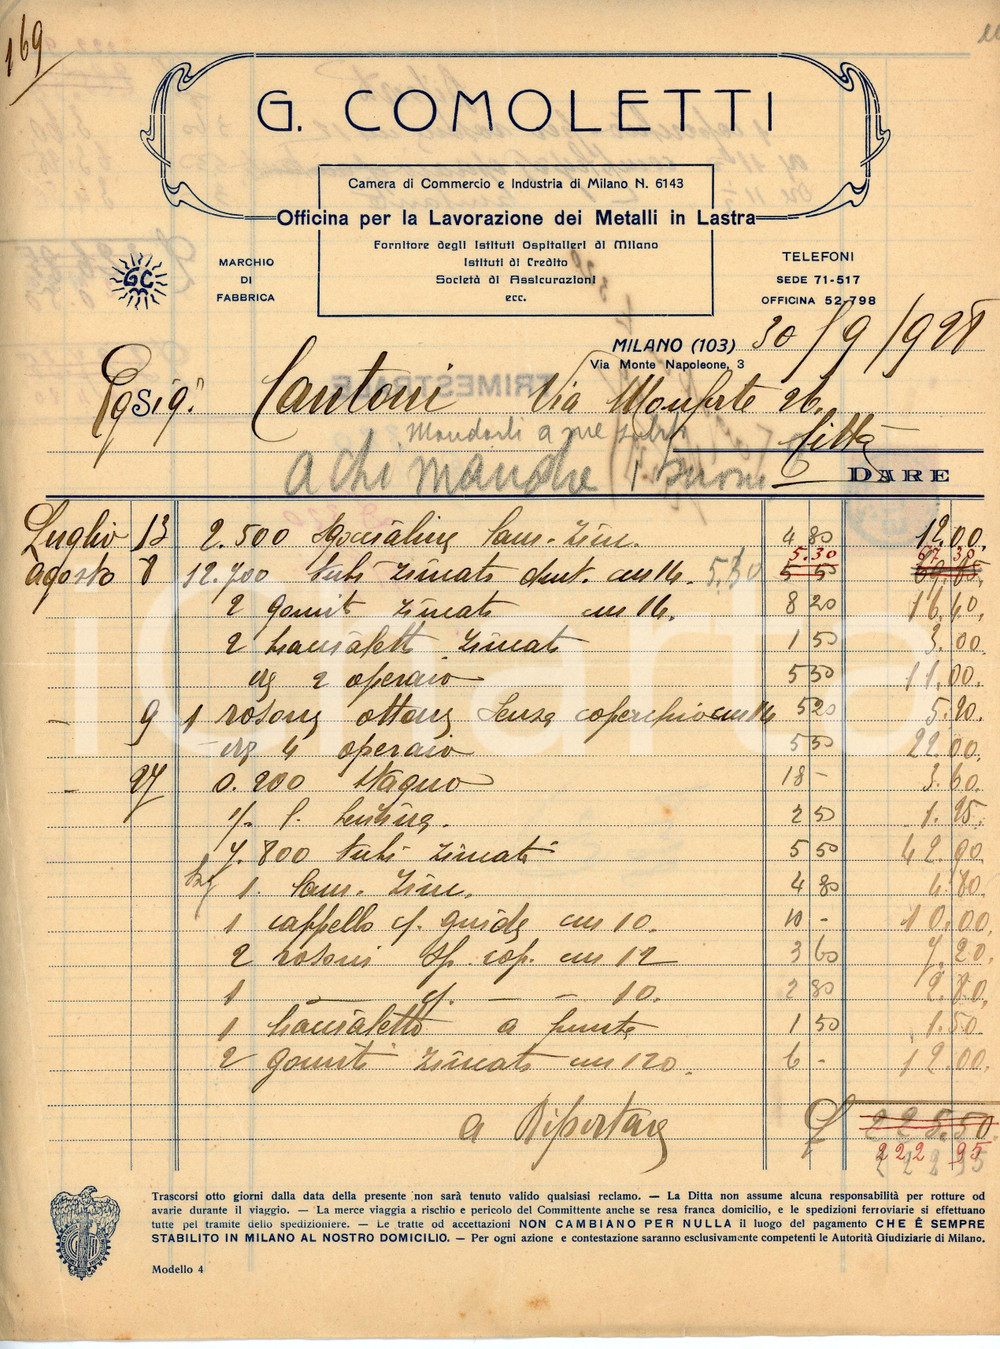 169
G. COMOLETTI
Camera di Commercio e Industria di Milano N. 6143
Officina per la Lavorazione dei Metalli in Lastra
Fornitore degli Istituti Ospitalieri di Milano
Istituti di Credito
Società di Assicurazioni
ecc.
GC
MARCHIO
DI
FABBRICA
TELEFONI
SEDE 71-517
OFFICINA 52-798
MILANO (103) 30/9/1928
Via Monte Napoleone, 3
Egsig. Cantoni Via Monforte 26.
Mandarli a me
Città
a chi manche i buoni
DARE
Luglio 13 2.500 lam. Zinc. 4 80 12.00
5.30 67 30
Agosto 8 12.700 tubi zincati cm 14. 5.30 5 50
2 gomiti zincati cm 14. 8 20 16.40
2 zincati 1 50 3.00
2 operaio 5 50 11.00
9 1 rosone ottone senza coperchio cm 14 5 20 5.20
4 operaio 5 50 22.00
27 0.200 stagno 18 - 3.60
2 50 1.25
7.800 tubi zincati 5 50 42.90
1. lam. Zinc. 4 80 4.80
1 cappello c/ guide cm 10. 10 - 10.00
2 rosoni cop. cm 12 3 60 7.20
1 — c/. — — 10. 2 80 2.80
1 a punta 1 50 1.50
2 gomiti zincati cm 120. 6 - 12.00
a Riportare £ 225.50
222 95
222 95
Trascorsi otto giorni dalla data della presente non sarà tenuto valido qualsiasi reclamo. — La Ditta non assume alcuna responsabilità per rotture od
avarie durante il viaggio. — La merce viaggia a rischio e pericolo del Committente anche se resa franca domicilio, e le spedizioni ferroviarie si effettuano
tutte pel tramite dello spedizioniere. — Le tratte od accettazioni NON CAMBIANO PER NULLA il luogo del pagamento CHE È SEMPRE
STABILITO IN MILANO AL NOSTRO DOMICILIO. — Per ogni azione e contestazione saranno esclusivamente competenti le Autorità Giudiziarie di Milano.
Modello 4